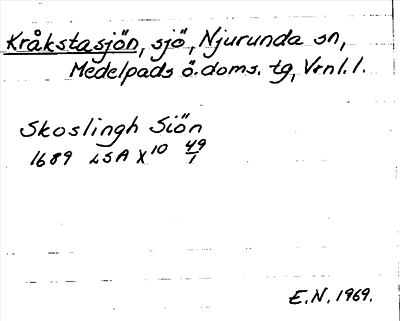 Kråkstasjön, sjö, Njurunda sn,
Medelpads ö. doms. tg, Vrnl. l.
Skoslingh Siön
1689 LSA X¹⁰ 49/1
E.N. 1969.